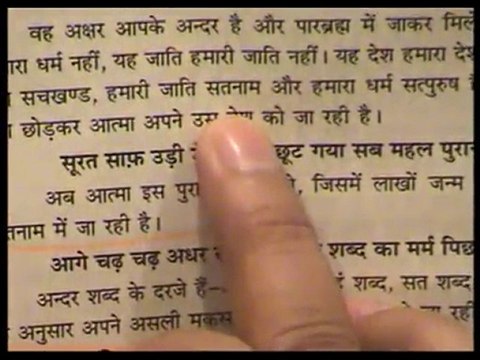 वह अक्षर आपके अन्दर है और पारब्रह्म में जाकर मिल
धर्म नहीं, यह जाति हमारी जाति नहीं। यह देश हमारा
सचखण्ड, हमारी जाति सतनाम और हमारा धर्म सत्पुरुष
छोड़कर आत्मा अपने उस को जा रही है।
सूरत साफ़ उड़ी छूट गया सब महल
अब आत्मा इस जिसमें लाखों जन्म
में जा रही है।
आगे चढ़ चढ़ अधर शब्द का मर्म
अन्दर शब्द के दरजे हैं– शब्द, सत शब्द
अनुसार अपने असली जा